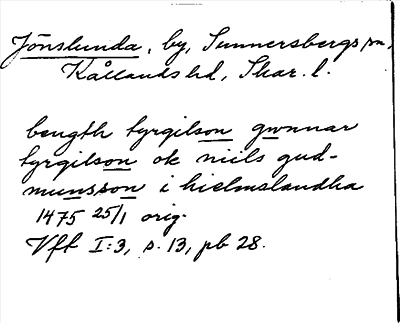 Jönslunda, by, Sunnersbergs sn,
Kållands hd, Skar. l.
bength tyrgilson gwnnar
tyrgilson ok niels gud-
munsson i hielmslandha
1475 25/1 orig.
Vft I:3, s. 13, pb 28.